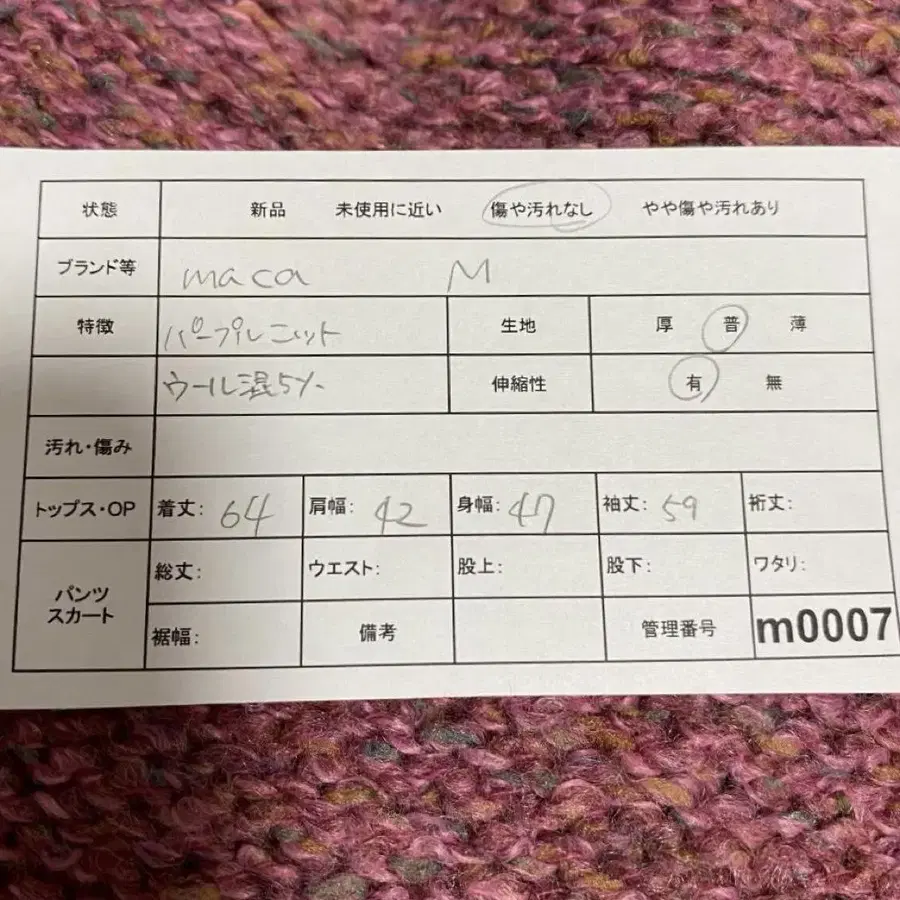 状態 新品 未使用に近い 傷や汚れなし やや傷や汚れあり
ブランド等 maca M
特徴 パープルニット 生地 厚 普 薄
ウール混5% 伸縮性 有 無
汚れ・傷み
トップス・OP 着丈: 64 肩幅: 42 身幅: 47 袖丈: 59 裄丈:
パンツ スカート 総丈: ウエスト: 股上: 股下: ワタリ:
裾幅: 備考 管理番号 m0007